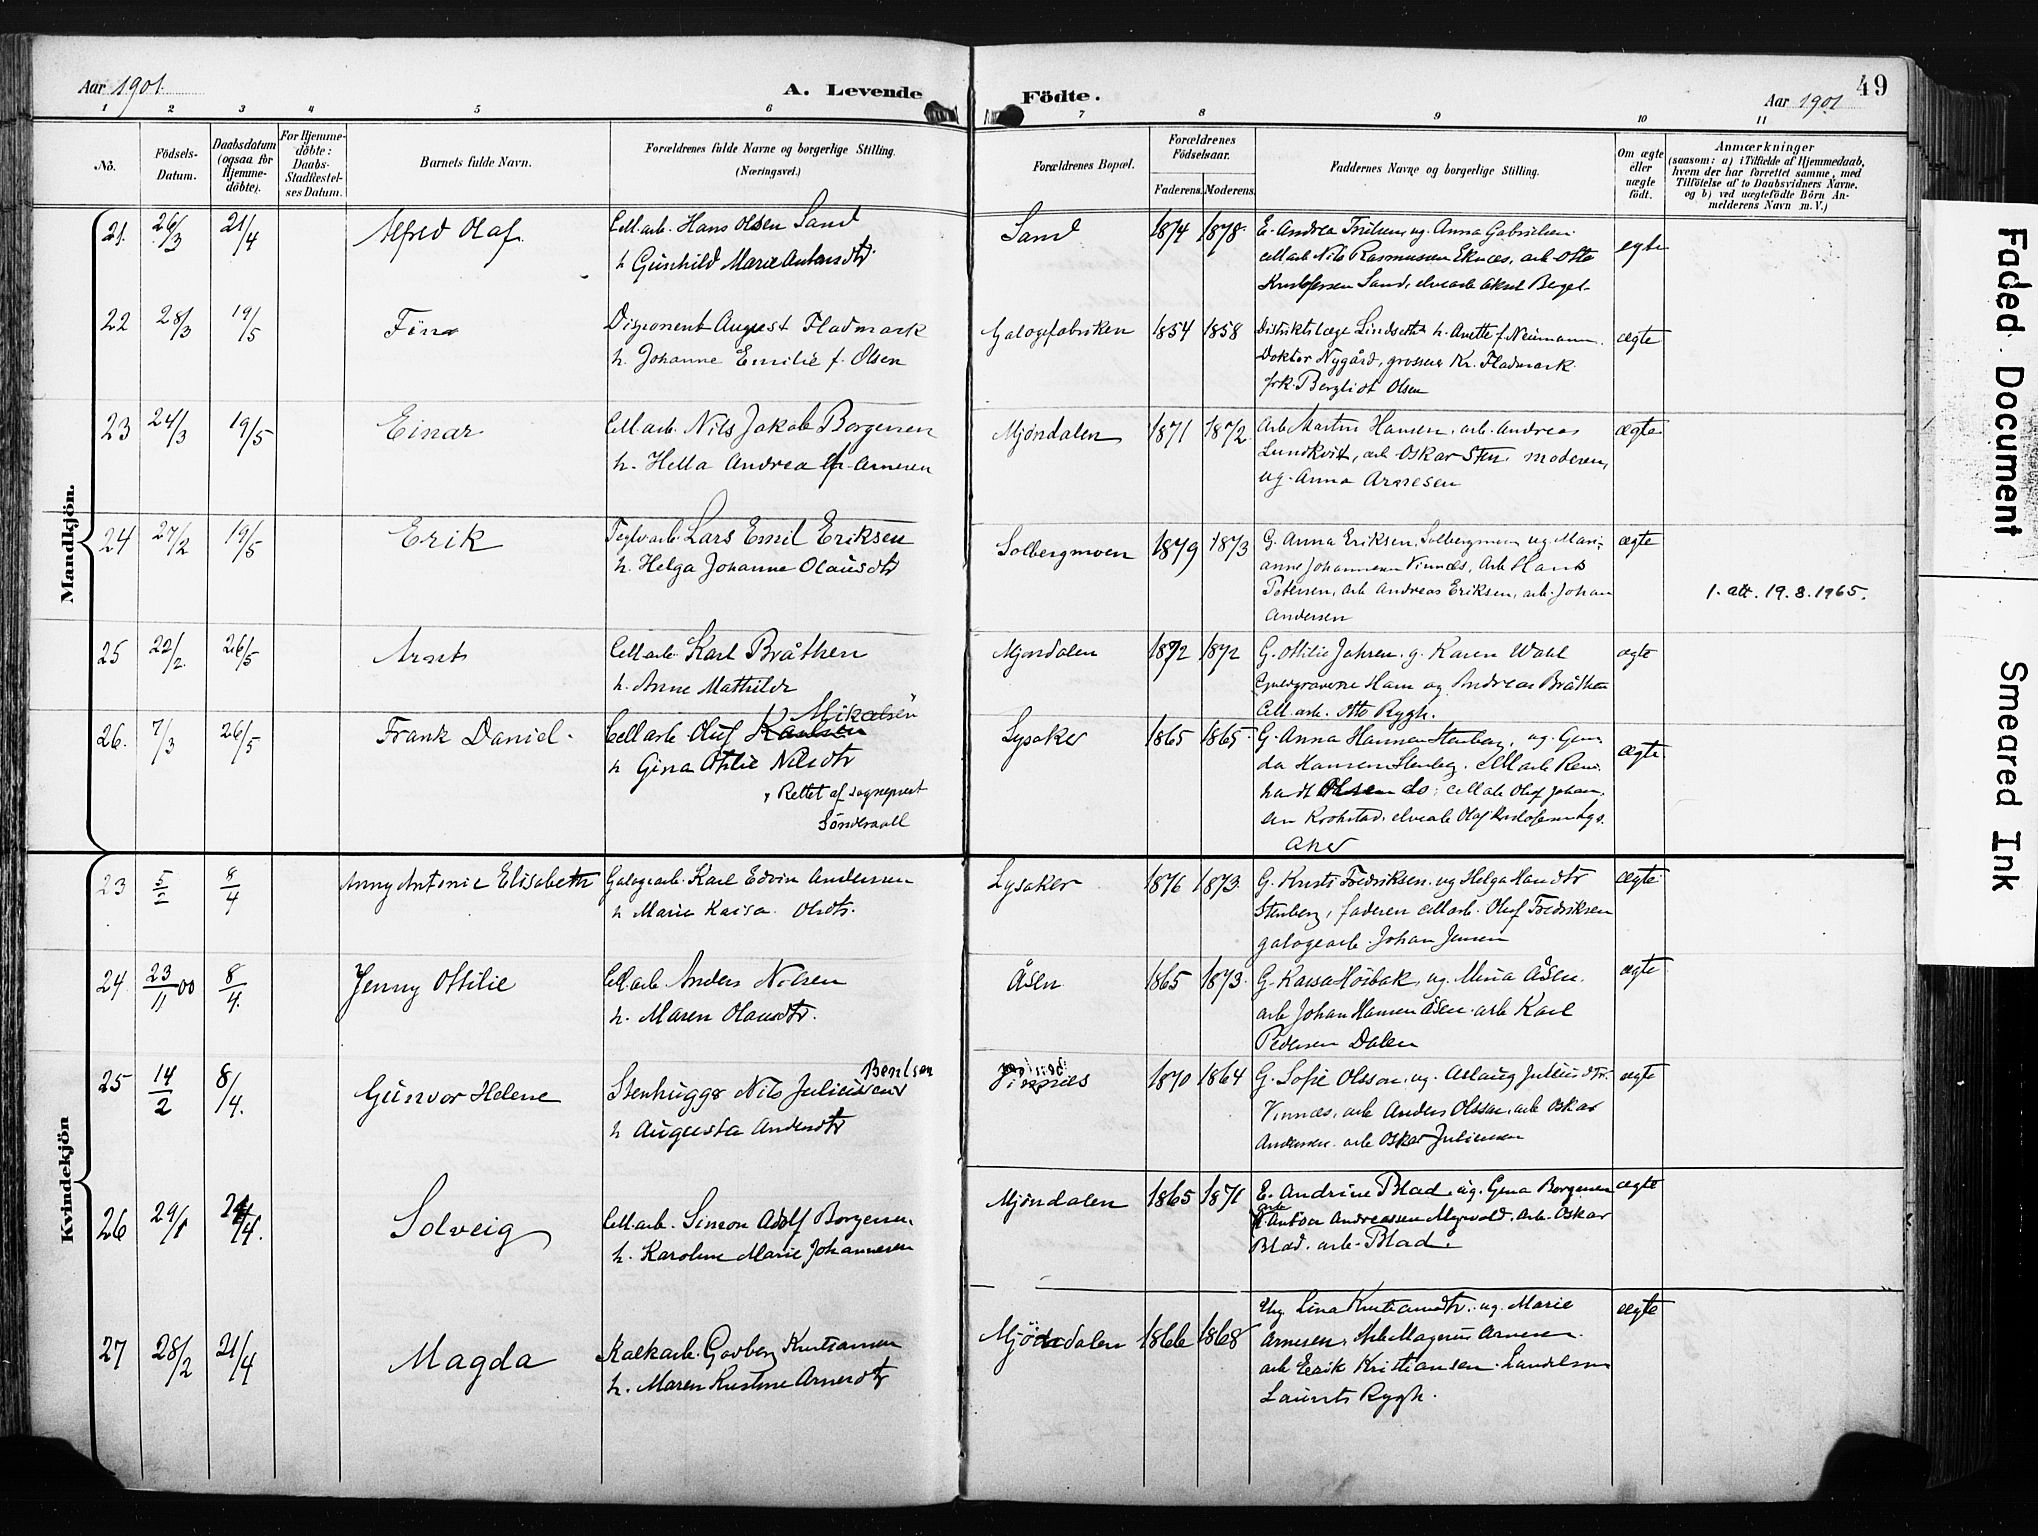 Aar 1901.
A. Levende
Födte.
Aar 1901
49
1 2 3 4 5 6 7 8 9 10 11
No.
Födsels-
Datum.
Daabsdatum
(ogsaa for
Hjemme-
döbte).
For Hjemme-
döbte:
Daabs-
Stadfæstel-
ses Datum.
Barnets fulde Navn.
Forældrenes fulde Navne og borgerlige Stilling.
(Næringsvei.)
Forældrenes Bopæl.
Forældrenes
Födselsaar.
Faderens. Moderens.
Faddernes Navne og borgerlige Stilling.
Om ægte
eller
uægte
födt.
Anmærkninger
(saasom: a) i Tilfælde af Hjemmedaab,
hvem der har forrettet samme, med
Tilföielse af to Daabsvidners Navne,
og b) ved uægtefödte Börn An-
melderens Navn m. V.)
Mandkjön.
21. 26/3 21/4 Alfred Olaf.
Cell.arb. Hans Olsen Sand
h. Gunhild Marie Antonsdtr.
Sand 1874 1878.
E. Andrea Nilsen, ug. Anna Gabrielsen
cellarb Nils Rasmussen Eknæs, arb Otto
Kristofersen Sand, elvearb Aksel
egte
22 28/3 19/5 Finn
Disponent August Fladmark
h. Johanne Emilie f. Olsen
Galogefabriken 1854 1858
Distriktslæge Lindseth h. Anette f. Neumann.
Doktor Nygård, grosserer Kr. Fladmark.
frk. Bergliot Olsen
ægte
23 24/3 19/5 Einar
Cell.arb. Nils Jakob Borgersen
h. Hella Andrea Arnesen
Mjøndalen 1871 1872
Arb Martin Hansen, arb. Andreas
Lundkvit, arb Oskar Sten. moderen,
ug. Anna Arnesen
ægte
24 27/2 19/5 Erik
Teglv.arb. Lars Emil Eriksen
h. Helga Johanne Olausdtr
Solbergmoen 1879 1873
G. Anna Eriksen, Solbergmoen ug. Mari-
anne Johannesen Vinnæs, Arb Hans
Petersen, arb Andreas Eriksen, arb. Johan
Andersen
ægte
1. att. 19.8.1965.
25 22/2. 26/5 Arnt
Cell.arb. Karl Bråthen
h. Anne Mathilde
Mjøndalen 1872 1872
G. Ottilie Jahren. g. Karen Wahl
Hans og Andreas Bråthen
Cell.arb. Otto Rygh.
ægte
26. 7/3 26/5 Frank Daniel.
Mikalsen
Cell.arb Oluf Karlsen
h Gina Otilie Nilsdtr
, Rettet af sogneprest
Sönderaall
Lysaker 1865 1865.
G. Anna Hansen Stenberg, ug. Gun-
da Hansen Stenberg. cell.arb Rein-
hardt Olsen do; cell.arb Oluf Johan-
sen Krokstad. elvearb Olaf Kristofersen Lys-
aker
ægte
Kvindekjön
23 8/4 Anny Antonie Elisabeth
Galogearb. Karl Edvin Andersen
h Marie Kaisa Olsdtr.
Lysaker 1876 1873.
G. Kristi Fredriksen. ug Helga Hansdtr
Stenberg, faderen cellarb. Oluf Fredriksen
galogearb. Johan Jensen
ægte.
24. 23/11 00 8/4. Jenny Ottilie
Cell.arb Anders Nilsen
h. Maren Olausdtr.
Åsen 1865 1873.
G. Kaisa Hoibak, ug. Mina Åsen.
arb Johan Hansen Åsen. arb Karl
Pedersen Dalen
ægte
25 14/2 8/4. Gunvor Helene
Bentsen
Stenhugger Nils Juliussen
h Augusta Andersdtr
1870 1864
G. Sofie Olsson, ug. Aslaug Juliusdtr.
Vinnæs, arb Anders Olsson, arb Oskar
Andersen. arb Oskar Juliussen
ægte
26 29/1 21/4. Solveig
Cell.arb. Simon Adolf Borgersen.
h. Karoline Marie Johannesen
Mjøndalen 1865 1871
E. Andrine Blad, ug. Gina Borgersen
arb Anton Andreassen Myrvold, Arb. Oskar
Blad. arb. Blad.
ægte
27 28/2 21/4 Magda
Kalkarb. Godberg Kristiansen
h. Maren Kristine Arnesdtr
Mjöndalen 1866 1868
Ug Lina Kristiansdtr. ug. Marie
Arnesen, Arb Magnus Arnesen.
arb Eerik Kristiansen.
Laurits Rygh.
ægte
Faded Document
Smeared Ink